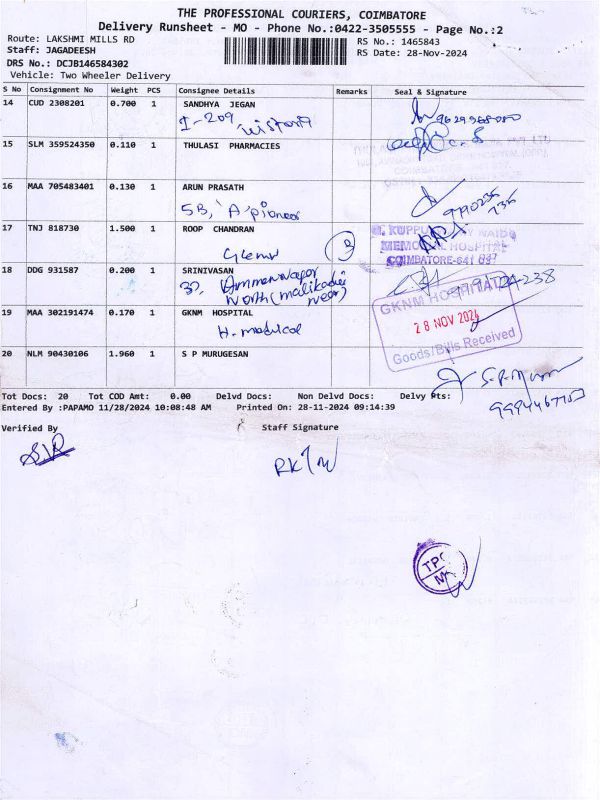 THE PROFESSIONAL COURIERS, COIMBATORE
Delivery Runsheet - MO - Phone No.:0422-3505555 - Page No.:2
Route: LAKSHMI MILLS RD
RS No.: 1465843
Staff: JAGADEESH
RS Date: 28-Nov-2024
DRS No.: DCJB146584302
Vehicle: Two Wheeler Delivery
S No Consignment No Weight PCS Consignee Details Remarks Seal & Signature
14 CUD 2308201 0.700 1 SANDHYA JEGAN
I-209
15 SLM 359524350 0.110 1 THULASI PHARMACIES
16 MAA 705483401 0.130 1 ARUN PRASATH
5B, 'A' pioneer
17 TNJ 818730 1.500 1 ROOP CHANDRAN
MEMORIAL HOSPITAL
COIMBATORE-641 037
18 DDG 931587 0.200 1 SRINIVASAN
North (
near)
19 MAA 302191474 0.170 1 GKNM HOSPITAL
H. medical
GKNM HOSPITAL
28 NOV 2024
Goods/Bills Received
20 NLM 90430106 1.960 1 S P MURUGESAN
Tot Docs: 20 Tot COD Amt: 0.00 Delvd Docs: Non Delvd Docs: Delvy Pts:
Entered By :PAPAMO 11/28/2024 10:08:48 AM Printed On: 28-11-2024 09:14:39
Verified By Staff Signature
TPC